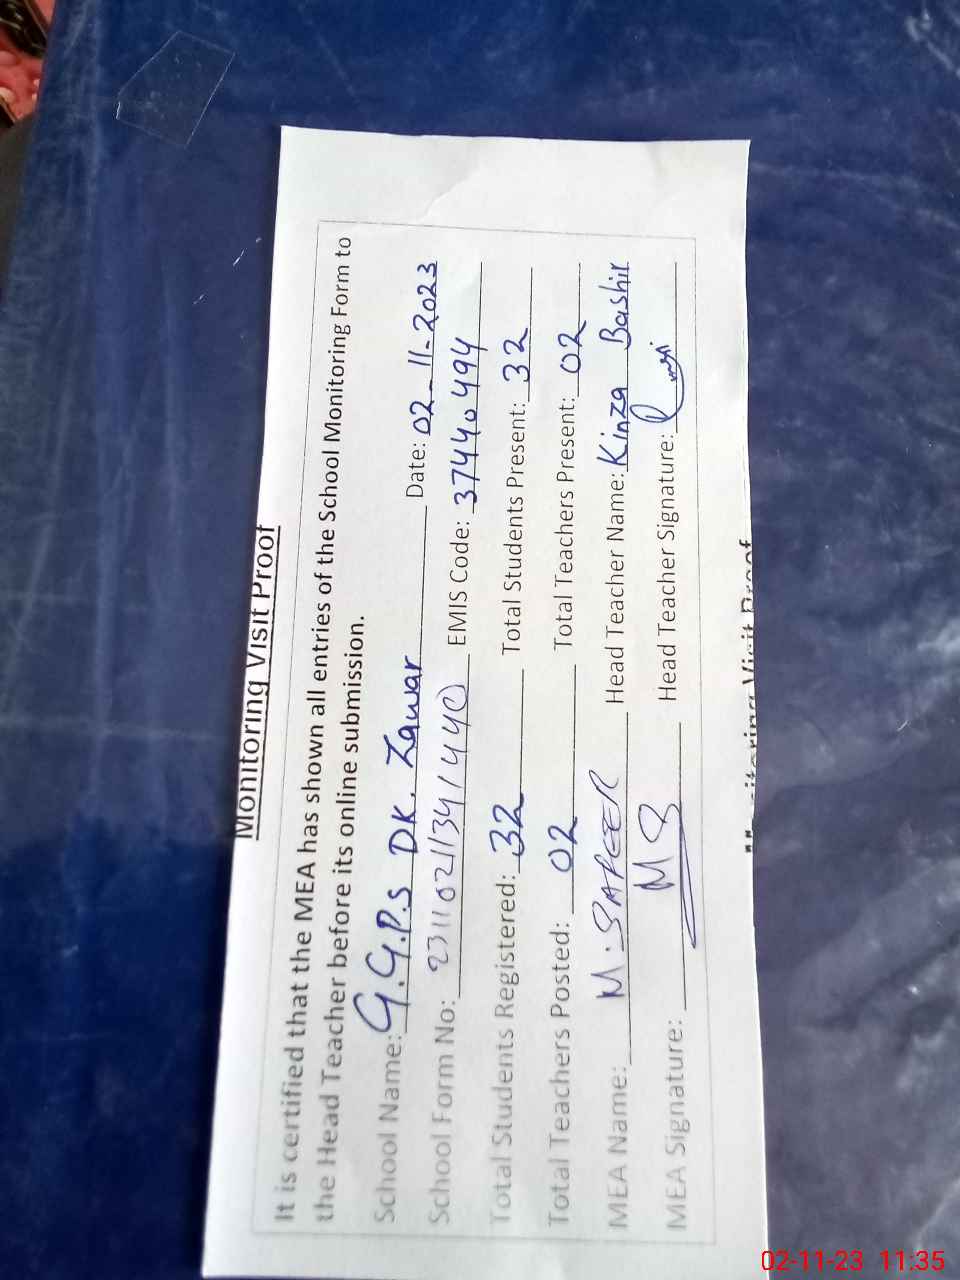 Monitoring Visit Proof
It is certified that the MEA has shown all entries of the School Monitoring Form to
the Head Teacher before its online submission.
School Name: G.G.P.S DK. Zawar Date: 02-11-2023
School Form No: EMIS Code: 37440494
Total Students Registered: 32 Total Students Present: 32
Total Teachers Posted: 02 Total Teachers Present: 02
MEA Name: M. Head Teacher Name: Kinza Bashir
MEA Signature: MS Head Teacher Signature:
Monitoring Visit Proof
02-11-23 11:35